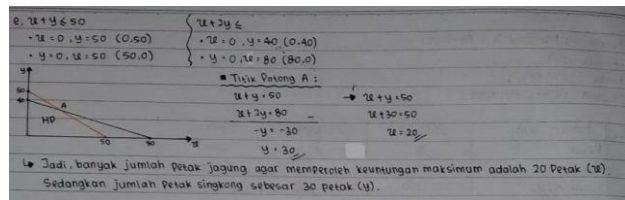 e. x + y ≤ 50
• x = 0, y = 50 (0.50)
• y = 0, x = 50 (50,0)
x + 2y ≤
• x = 0, y = 40 (0.40)
• y = 0, x = 80 (80,0)
■ Titik Potong A :
x + y = 50
x + 2y = 80 –
-y = -30
y = 30
→ x + y = 50
x + 30 = 50
x = 20
y
50
40
A
HP
50
80
x
↳ Jadi, banyak jumlah petak jagung agar memperoleh keuntungan maksimum adalah 20 Petak (x)
Sedangkan jumlah Petak singkong sebesar 30 petak (y).